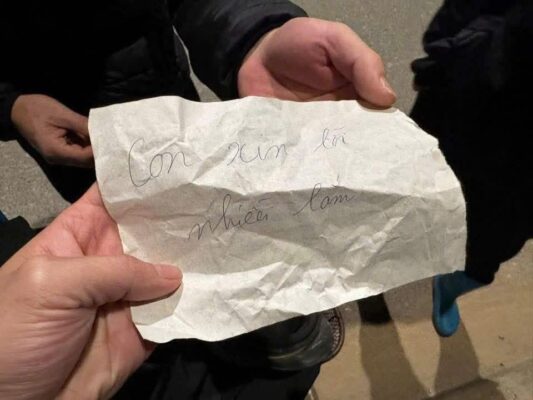 Con xin lỗi
nhiều lắm